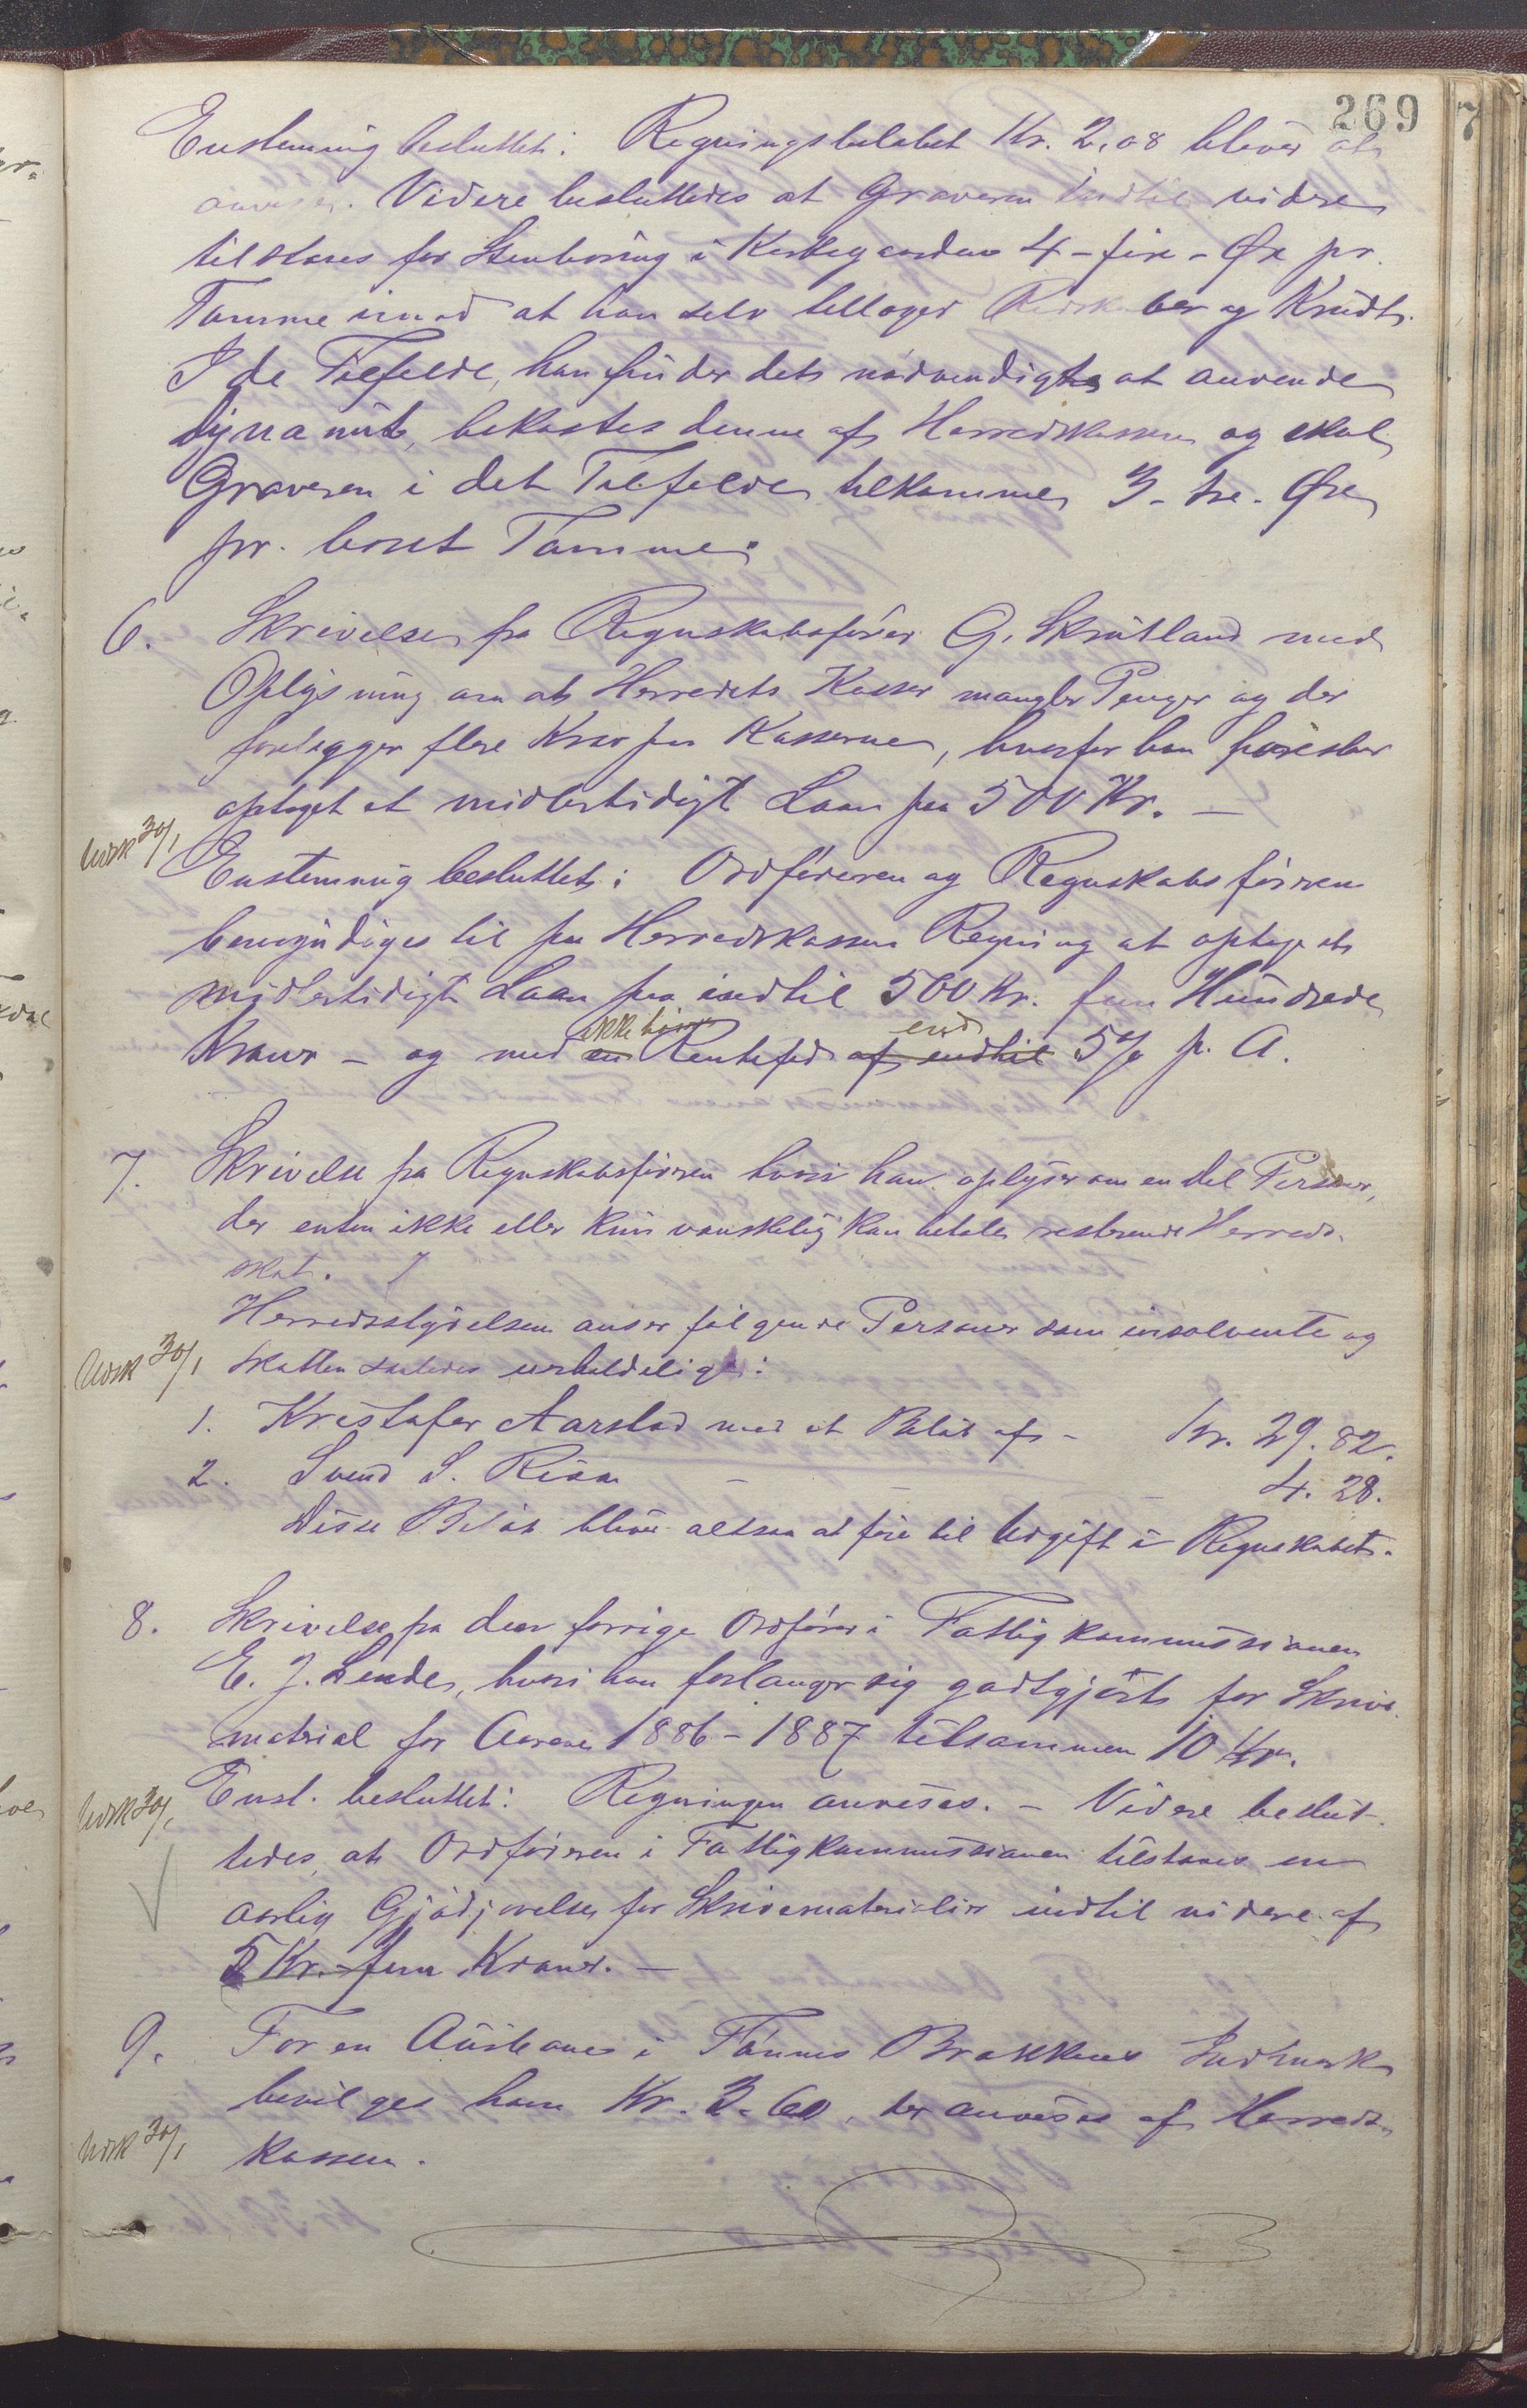 269
Enstemmig besluttet: Regningsbeløbet Kr. 2,08 bliver at
anvise. Videre besluttedes at Graveren indtil videre
tilstaaes for Stenboring i Kirkegaarden 4 - fire - Øre pr.
Tomme imod at han selv  Redskaber og Krudt.
I de Tilfelde, han finder det nødvendigt at anvende
Dynamit, bekostes denne af Herredskassen og skal
Graveren i det Tilfelde tilkomme 3 - tre - Øre
pr. boret Tomme.
6. Skrivelse fra Regnskabsfører G. Skrutland med
Oplysning om at Herredets Kasser mangler Penger og der
foreligger flere Krav paa Kasserne, hvorfor han foreslaar
optaget et midlertidigt Laan paa 500 Kr. —
Udsk 30/1
Enstemmig besluttet: Ordføreren og Regnskabsføreren
bemyndiges til paa Herredskassens Regning at optage et
midlertidigt Laan paa indtil 500 Kr. fem Hundrede
Kroner - og med en ikke høiere Rentefod af indtil end 5 % p. A.
7. Skrivelse fra Regnskabsføreren hvori han oplyser om en del Personer,
der enten ikke eller kun vanskelig kan betale resterende Herreds-
skat.
Herredsstyrelsen anser følgende Personer som insolvente og
Udsk 30/1
Skatten saaledes uerholdelig:
1. Kristofer Aarstad med et Beløb af - Kr. 29.82.
2. Svend S. Risa - - - 4.28.
Disse Beløb bliver altsaa at føre til Udgift i Regnskabet.
8. Skrivelse fra den forrige Ordfører i Fattigkommissionen
E. J. Linde, hvori han forlanger sig godtgjort for Skrive
material for Aarene 1886 - 1887 tilsammen 10 Kr.
Udsk 30/1
Enst. besluttet: Regningen anvises. - Videre beslut-
tedes, at Ordføreren i Fattigkommissionen tilstaaes en
aarlig Godtgjørelse for Skrivematerialier indtil videre af
5 Kr. - fem Kroner. —
9. For en  i Tønnes Brekkes Indmark
bevilges ham Kr. 3.60, der anvises af Herreds-
Udsk 30/1
kassen.